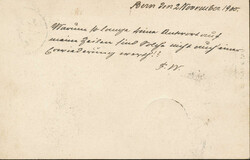 Bern den 2 November 1900.
Warum so lange keine Antwort auf
meine Zeilen sind solche nicht auch einer
Erwiederung werth!!
F. W.